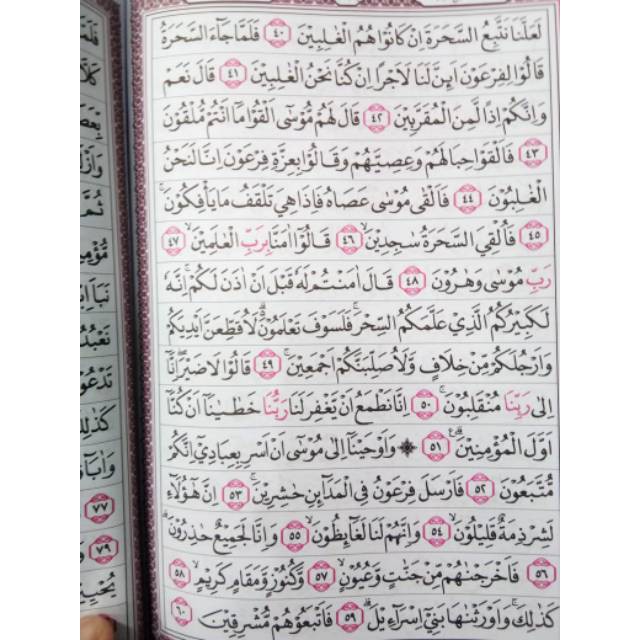 لَعَلَّنَا نَتَّبِعُ السَّحَرَةَ اِنْ كَانُوْا هُمُ الْغٰلِبِيْنَ ٤٠ فَلَمَّا جَاۤءَ السَّحَرَةُ
قَالُوْا لِفِرْعَوْنَ اَىِٕنَّ لَنَا لَاَجْرًا اِنْ كُنَّا نَحْنُ الْغٰلِبِيْنَ ٤١ قَالَ نَعَمْ
وَاِنَّكُمْ اِذًا لَّمِنَ الْمُقَرَّبِيْنَ ٤٢ قَالَ لَهُمْ مُّوْسٰٓى اَلْقُوْا مَآ اَنْتُمْ مُّلْقُوْنَ
٤٣ فَاَلْقَوْا حِبَالَهُمْ وَعِصِيَّهُمْ وَقَالُوْا بِعِزَّةِ فِرْعَوْنَ اِنَّا لَنَحْنُ
الْغٰلِبُوْنَ ٤٤ فَاَلْقٰى مُوْسٰى عَصَاهُ فَاِذَا هِيَ تَلْقَفُ مَا يَأْفِكُوْنَۚ
٤٥ فَاُلْقِيَ السَّحَرَةُ سٰجِدِيْنَۙ ٤٦ قَالُوْٓا اٰمَنَّا بِرَبِّ الْعٰلَمِيْنَۙ ٤٧
رَبِّ مُوْسٰى وَهٰرُوْنَ ٤٨ قَالَ اٰمَنْتُمْ لَهٗ قَبْلَ اَنْ اٰذَنَ لَكُمْۚ اِنَّهٗ
لَكَبِيْرُكُمُ الَّذِيْ عَلَّمَكُمُ السِّحْرَۚ فَلَسَوْفَ تَعْلَمُوْنَ ەۗ لَاُقَطِّعَنَّ اَيْدِيَكُمْ
وَاَرْجُلَكُمْ مِّنْ خِلَافٍ وَّلَاُصَلِّبَنَّكُمْ اَجْمَعِيْنَۚ ٤٩ قَالُوْا لَا ضَيْرَ ۖاِنَّآ
اِلٰى رَبِّنَا مُنْقَلِبُوْنَۚ ٥٠ اِنَّا نَطْمَعُ اَنْ يَّغْفِرَ لَنَا رَبُّنَا خَطٰيٰنَآ اَنْ كُنَّآ
اَوَّلَ الْمُؤْمِنِيْنَۗ ٥١ ۞ وَاَوْحَيْنَآ اِلٰى مُوْسٰٓى اَنْ اَسْرِ بِعِبَادِيْٓ اِنَّكُمْ
مُّتَّبَعُوْنَ ٥٢ فَاَرْسَلَ فِرْعَوْنُ فِى الْمَدَاۤىِٕنِ حٰشِرِيْنَۚ ٥٣ اِنَّ هٰٓؤُلَاۤءِ
لَشِرْذِمَةٌ قَلِيْلُوْنَۙ ٥٤ وَاِنَّهُمْ لَنَا لَغَاۤىِٕظُوْنَۙ ٥٥ وَاِنَّا لَجَمِيْعٌ حٰذِرُوْنَۗ
٥٦ فَاَخْرَجْنٰهُمْ مِّنْ جَنّٰتٍ وَّعُيُوْنٍۙ ٥٧ وَّكُنُوْزٍ وَّمَقَامٍ كَرِيْمٍۙ ٥٨
كَذٰلِكَۚ وَاَوْرَثْنٰهَا بَنِيْٓ اِسْرَاۤءِيْلَۗ ٥٩ فَاَتْبَعُوْهُمْ مُّشْرِقِيْنَ ٦٠